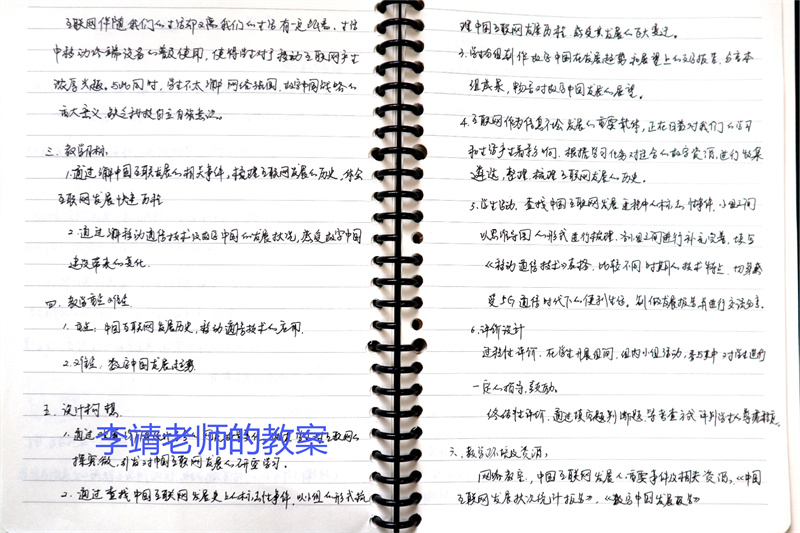 互联网伴随我们的生活却又离我们的生活有一定距离。生活
中移动终端设备的普及使用，使得学生对于移动互联网产生
浓厚兴趣。与此同时，学生不太了解网络强国、数字中国战略的
重大意义，缺乏科技自立自强意识。
三、教学目标
1.通过了解中国互联网发展的相关事件，梳理互联网发展的历史，体会
互联网发展快速历程
2.通过了解移动通信技术及数字中国的发展状况，感受数字中国
建设带来的变化.
四、教学重点难点
1.重点：中国互联网发展历史，移动通信技术的应用.
2.难点：数字中国发展趋势
五、设计构想
1.通过
探究欲，引发对中国互联网发展的研究学习.
2.通过查找中国互联网发展史上的标志性事件，以小组的形式梳
李靖老师的教案
理中国互联网发展历程，感受其发展的百大变迁。
3.学生分组制作数字中国在发展趋势和展望上的文字报告，分享本
组成果，畅言对数字中国发展的展望.
4.互联网作为信息社会发展的重要载体，正在日益对我们的学习
和生活产生着影响.根据学习任务对适合的数字资源，进行收集
遴选、整理、梳理互联网的历史。
5.学生活动：查找中国互联网发展进程中的标志性事件，小组之间
以思维导图的形式进行梳理，各小组之间进行补充完善，填写
《移动通信技术》表格，比较不同时期的技术特点，切身感
受5G通信时代下的便利生活。制作发展报告并进行交流分享.
6.评价设计
过程性评价：在学生开展期间，组内小组活动，参与其中对学生进行
一定的指导、鼓励。
终结性评价：通过填空题、判断题等检查方式评判学生的掌握情况.
六、教学环境及资源：
网络教室，中国互联网发展的重要事件及相关资源，《中国
互联网发展状况统计报告》，《数字中国发展报告》